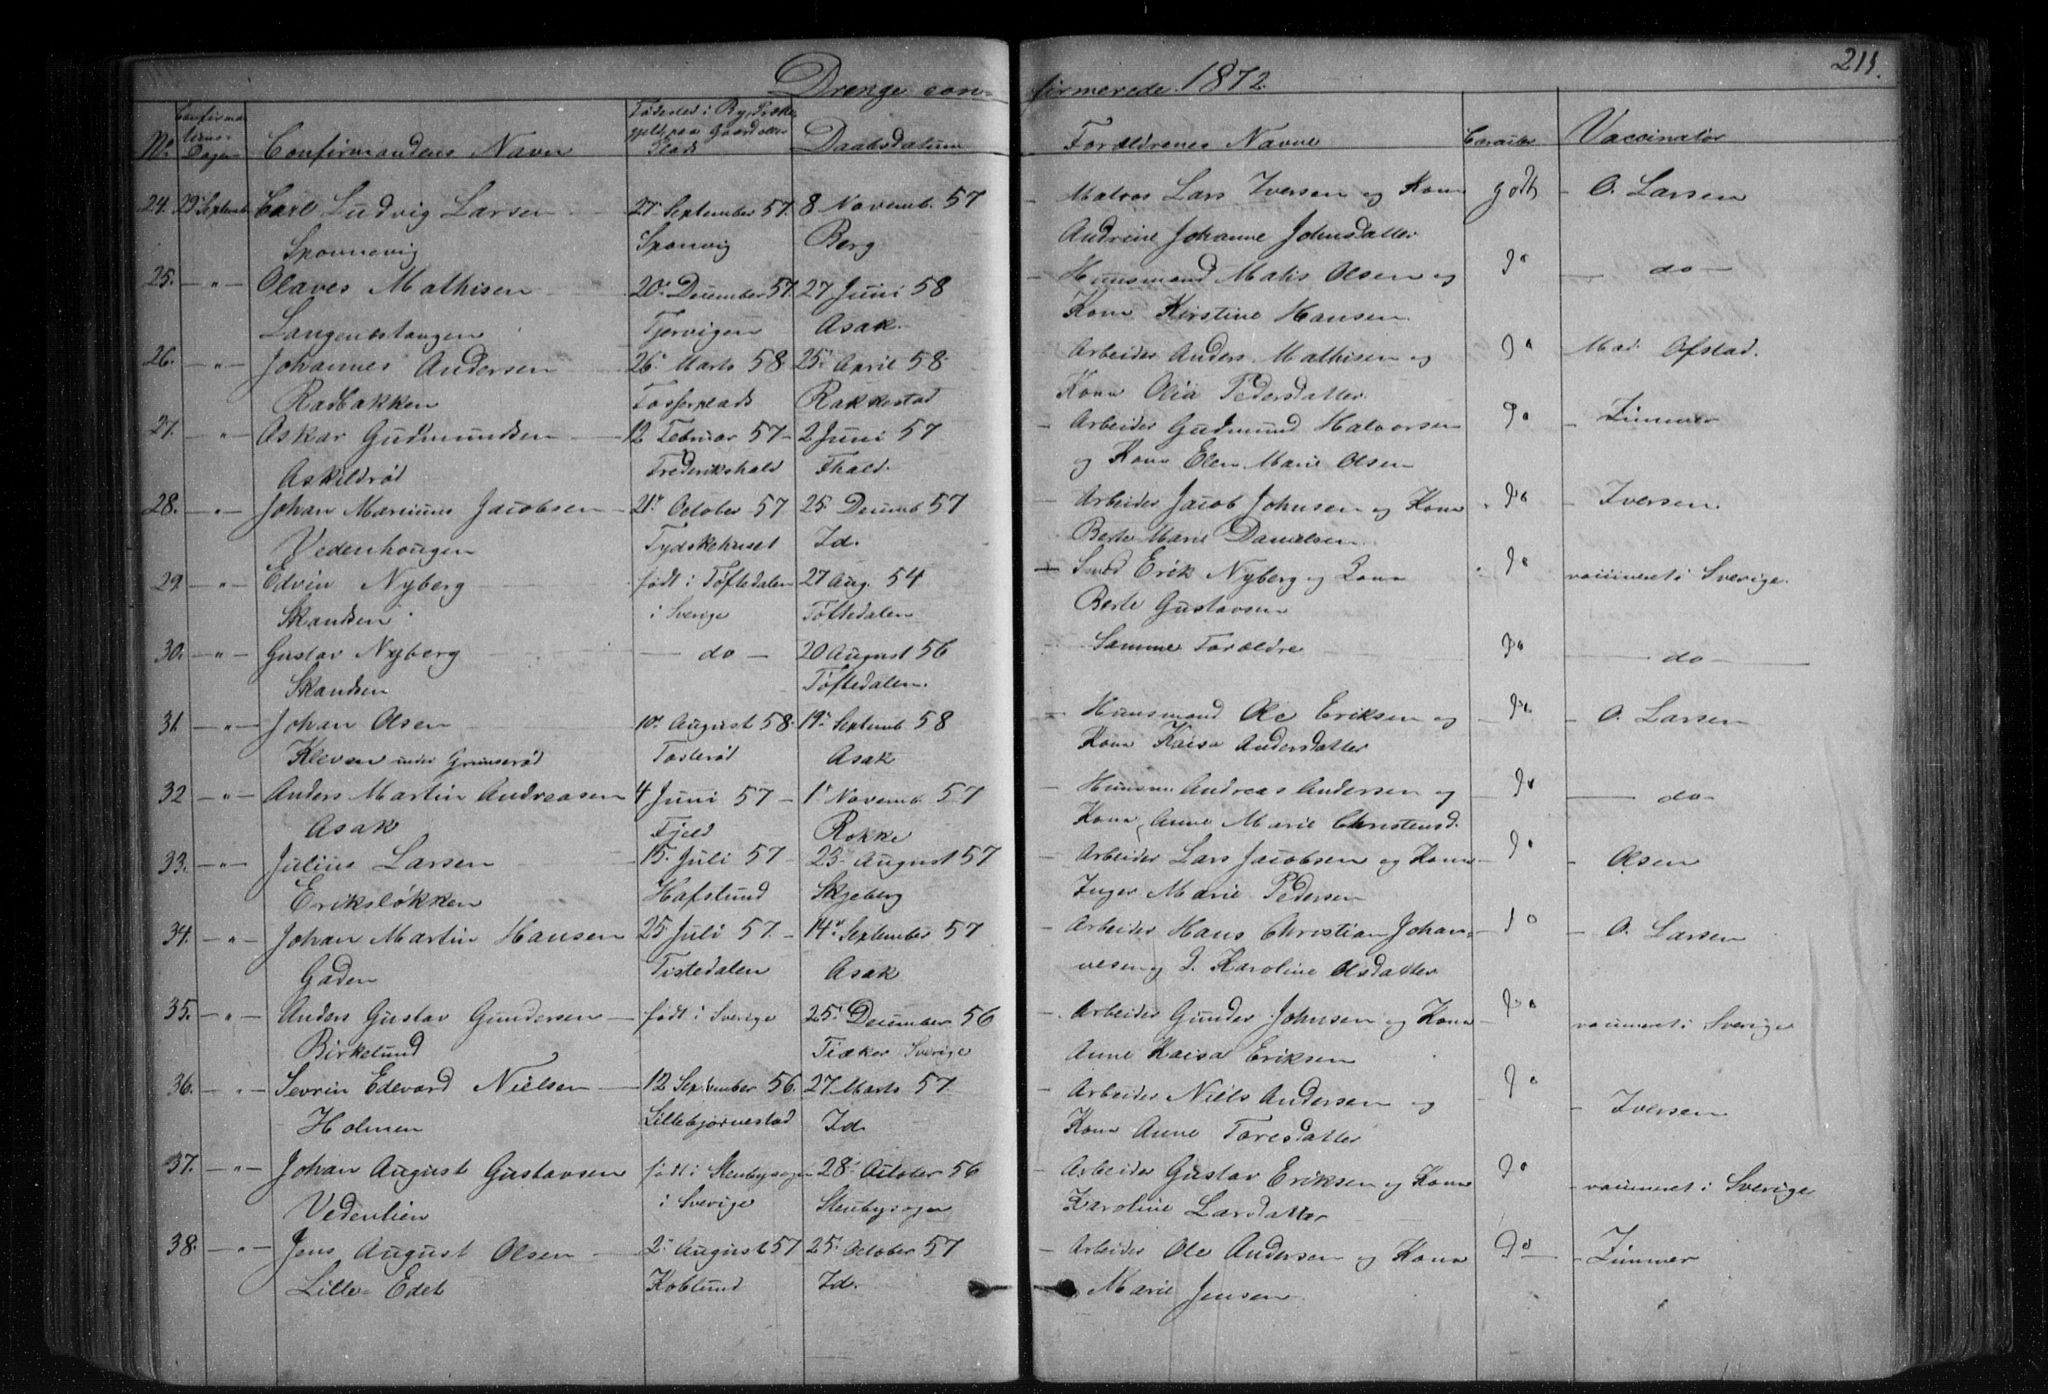 211.
Drenge confirmerede 1872.
No. Confirmations Dagen Confirmandens Navn Fødested i By, Præstegjeld, paa Gaard eller Plads Daabsdatum Forældrenes Navne Caracter Vaccinator
24. 29 Septemb. Carl Ludvig Larsen 27 September 57. 8 Novemb. 57 Matros Lars Iversen og Kone godt O. Larsen
Sponnevig Sponvig Berg Andrine Johanne Johnsdatter
25. " Olaves Mathisen 20 December 57 27 Juni 58 Huusmand Matis Olsen og do do
Langenestangen Tjervigen Asak Kone Kirstine Hansen
26. " Johannes Andersen 26 Marts 58 25 April 58 Arbeider Anders Mathisen og do Mad. Ofstad.
Rødbakken Fosserplads Rakkestad Kone Olia Pedersdatter
27. " Askar Gudmundsen 12 Februar 57 2 Juni 57 Arbeider Gudmund Halvorsen do Zimmer
Askildrød Frederikshald Fhald. og Kone Elen Marie Olsen
28. " Johan Marinus Jacobsen 21 October 57 25 Decemb 57 Arbeider Jacob Johnsen og Kone do Iversen
Vedenhougen Tydskehuset Id. Berte Marie Danielsen
29. " Edvin Nyberg født i Töftedalen 27 Aug. 54 Smed Erik Nyberg og Kone do vaccineret i Sverige.
Skandsen i Sverige Töftedalen Berte Gustavsen
30. " Gustav Nyberg do 20 August 56 Samme Forældre do do
Skandsen Töftedalen.
31. " Johan Olsen 10 August 58. 19 Septemb 58 Huusmand Ole Eriksen og do O. Larsen
Kleven under Grimsrød Tosterød Asak Kone Kaisa Andersdatter
32 " Anders Martin Andreasen 4 Juni 57 1 Novemb. 57 Huusm. Andreas Andersen og do do
Asak Fjeld Rokke Kone Anne Marie Christensd.
33. " Julius Larsen 15. Juli 57 23 August 57 Arbeider Lars Jacobsen og Kone do Olsen
Eriksløkken Hafslund Skjeberg Inger Marie Pedersen
34. " Johan Martin Hansen 25 Juli 57. 14 September 57 Arbeider Hans Christian Johan- do O. Larsen
Gaden Tistedalen Asak nesen og J. Karoline Olsdatter
35. " Anders Gustav Gundersen født i Sverige 25 December 56 Arbeider Gunder Johnsen og Kone do vaccineret i Sverige
Birkelund Tisker Sverige Anne Kaisa Eriksen
36. " Sevrin Edevard Nielsen 12 September 56. 27 Marts 57. Arbeider Niels Andersen og do Iversen
Holmen Lillebjørnestad Id. Kone Anne Toresdatter
37. " Johan August Gustavsen født i Stenbysogn 28 October 56 Arbeider Gustav Eriksen og Kone do vaccineret i Sverige
Vedenlien i Sverige Stenbysogn Karoline Larsdatter
38. " Jens August Olsen 2 August 57 25 October 57 Arbeider Ole Andersen og Kone do Zimmer
Lille-Edet Koblund Id. Marie Jensen